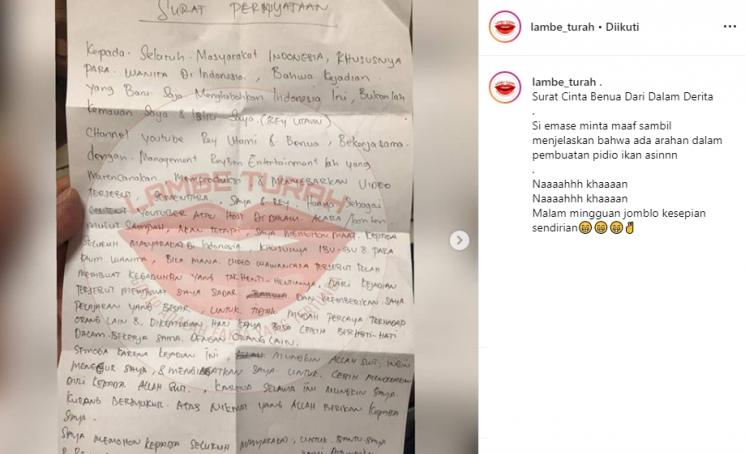 SURAT PERNYATAAN
Kepada. Seluruh. Masyarakat INDONESIA, KHUSUSNYA
PARA. WANITA DI Indonesia., Bahwa Kejadian.
yang Baru Saja Menghebohkan Indonesia Ini, Bukanlah
Kemauan Saya & Istri Saya. (REY UTAMI)
CHannel youtube Rey Utami & Benua, Bekerjasama.
dengan. Management Entertainment lah yang
Merencanakan Memproduksi & MENYEBARKAN VIDEO
TERSEBUT SEMENTARA SAYA & REY. Hanya Sebagai
YOUTUBER ATAU HOST DI DALAM. ACARA
MULUT SAMPAH, AKAN TETAPI SAYA MEMOHON MAAF KEPADA
SELURUH MASYARAKAT DI Indonesia, KHUSUSNYA IBU-IBU & PARA
KAUM WANITA, BILA MANA. VIDEO WAWANCARA TERSEBUT TELAH
MEMBUAT KEGADUHAN YANG TAK HENTI-HENTINYA, DARI KEJADIAN
TERSEBUT MEMBUAT SAYA SADAR DAN MEMBERIKAN SAYA
PELAJARAN YANG BESAR UNTUK TIDAK MUDAH PERCAYA TERHADAP
ORANG LAIN & DIKEMUDIAN HARI SAYA BISA LEBIH BERHATI-HATI
DALAM. BEKERJA SAMA. DENGAN ORANG LAIN.
SEMOGA KARENA KEJADIAN INI, MUNGKIN ALLAH SWT, INGIN
MENEGUR SAYA, & MENGINGATKAN SAYA UNTUK, LEBIH
DIRI KEPADA ALLAH SWT., KARENA SELAMA INI MUNGKIN SAYA.
KURANG BERSYUKUR. ATAS NIKMAT YANG ALLAH BERIKAN KEPADA
SAYA.
SAYA MEMOHON KEPADA SELURUH MASYARAKAT, UNTUK. BANTU SAYA
LAMBE TURAH
lambe_turah • Diikuti
lambe_turah .
Surat Cinta Benua Dari Dalam Derita
.
Si emase minta maaf sambil
menjelaskan bahwa ada arahan dalam
pembuatan pidio ikan asinnn
.
Naaaahhh khaaaan
Naaaahhh khaaaan
Malam mingguan jomblo kesepian
sendirian😁😁😁✌